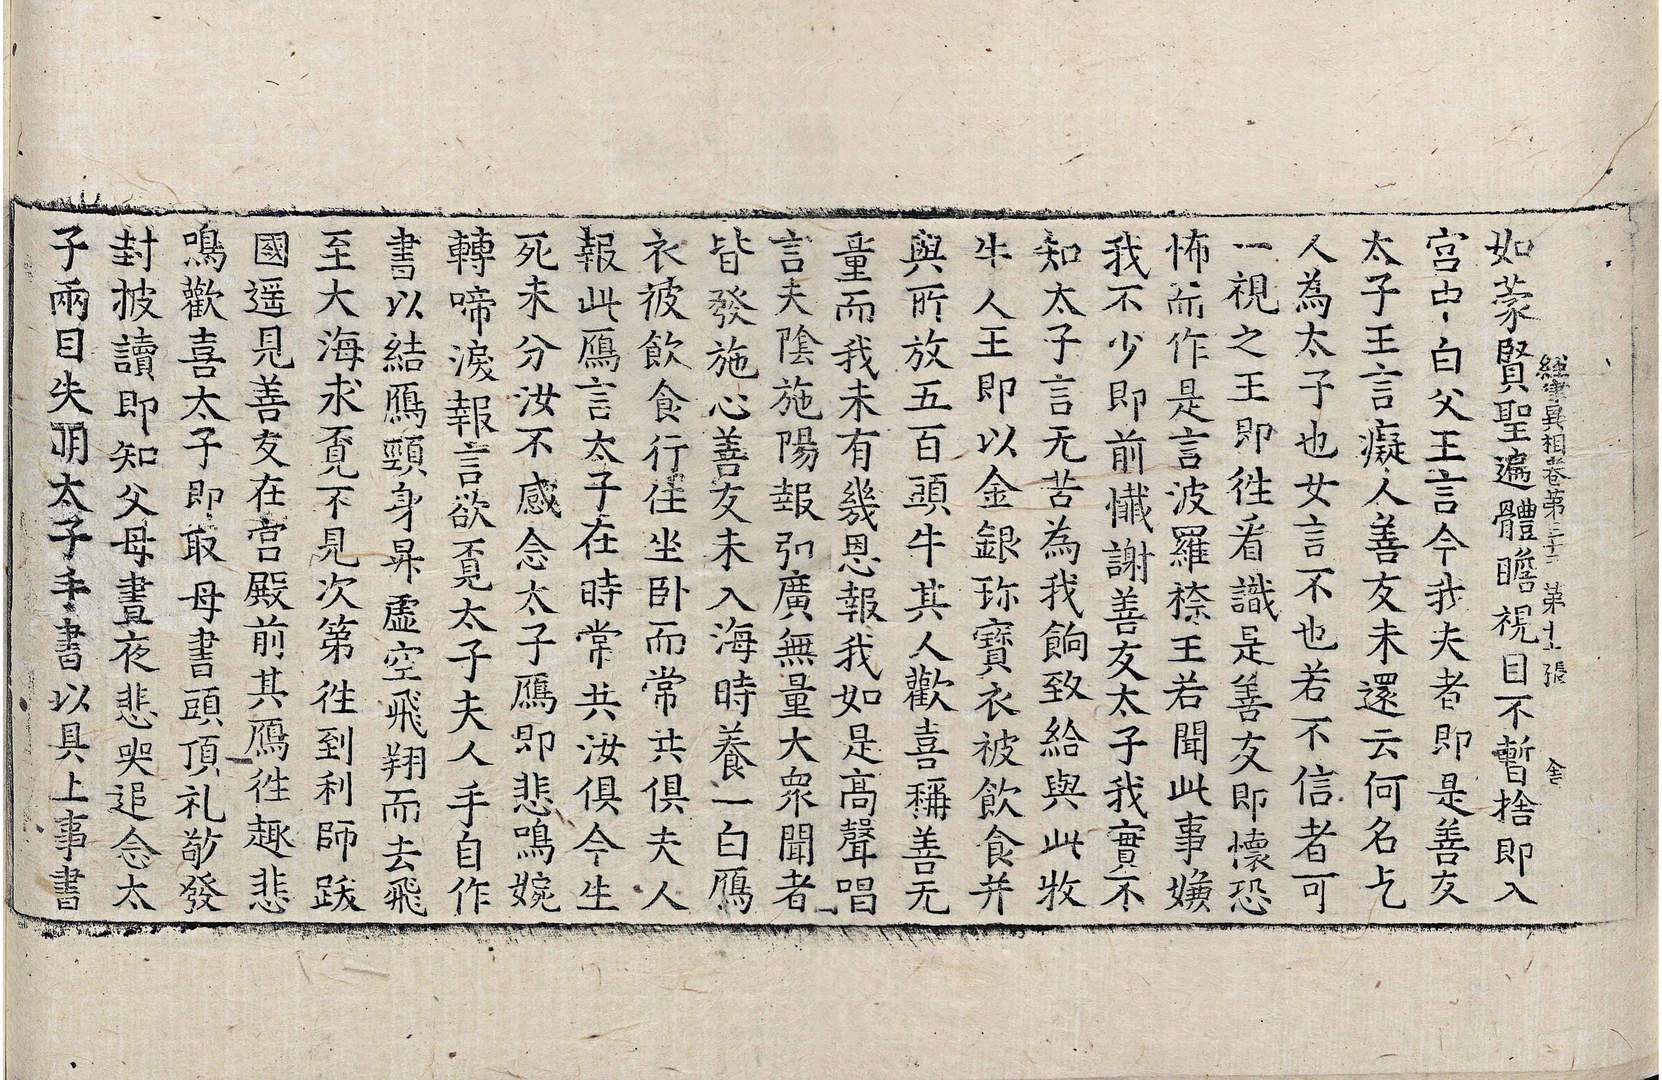 經律異相卷第三十二 第十一張 舍
如蒙賢聖遍體瞻視目不暫捨即入
宮中白父王言今我夫者即是善友
太子王言癡人善友未還云何名乞
人為太子也女言不也若不信者可
一視之王即徃看識是善友即懷恐
怖而作是言波羅㮈王若聞此事嫌
我不少即前懺謝善友太子我實不
知太子言无苦為我餉致給與此牧
牛人王即以金銀珎寶衣被飲食并
與所放五百頭牛其人歡喜稱善无
量而我未有幾恩報我如是高聲唱
言夫陰施陽報弘廣無量大衆聞者
皆發施心善友未入海時養一白鴈
衣被飲食行住坐卧而常共俱夫人
報此鴈言太子在時常共汝俱今生
死未分汝不感念太子鴈即悲鳴婉
轉啼淚報言欲覔太子夫人手自作
書以結鴈頸身昇虛空飛翔而去飛
至大海求覔不見次第徃到利師跋
國遥見善友在宫殿前其鴈徃趣悲
鳴歡喜太子即取母書頭頂礼敬發
封披讀即知父母晝夜悲哭追念太
子兩目失明太子手書以具上事書